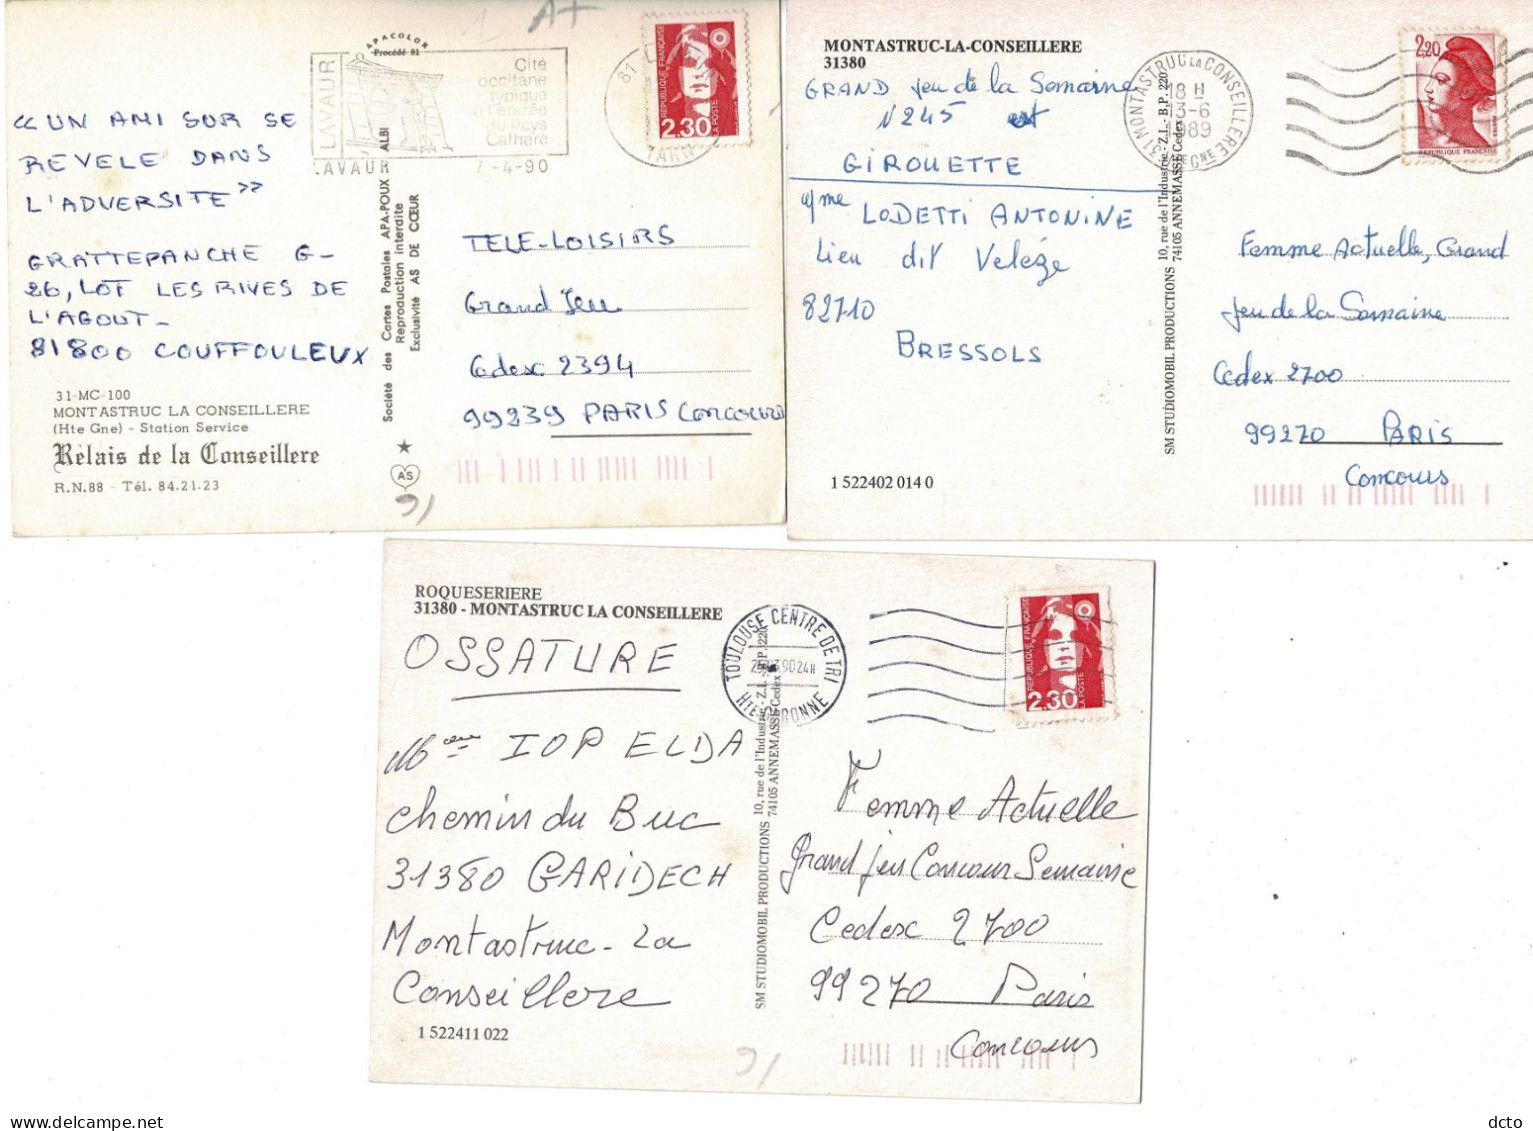 A+
APACOLOR
Procédé 81
LAVAUR
Cité
occitane
typique
du Pays
Cathare
LAVAUR
7-4-90
81
TARN
RÉPUBLIQUE FRANÇAISE
LA POSTE
2.30
« UN AMI SUR SE
REVELE DANS
L'ADVERSITE »
GRATTEPANCHE G-
26, LOT LES RIVES DE
L'AGOUT-
81800 COUFFOULEUX
31-MC-100
MONTASTRUC LA CONSEILLERE
(Hte Gne) - Station Service
Rélais de la Conseillere
R.N.88 - Tél. 84.21.23
Société des Cartes Postales APA-POUX ALBI
Reproduction interdite
Exclusivité AS DE CŒUR
AS
TELE-LOISIRS
Grand Jeu
Cedex 2394
99239 PARIS CONCOURS
MONTASTRUC-LA-CONSEILLERE
31380
GRAND jeu de la Semaine
N 245 est
GIROUETTE
LODETTI ANTONINE
Lieu dit Velèze
82710
BRESSOLS
1 522402 014 0
SM STUDIOMOBIL PRODUCTIONS 10, rue de l'Industrie - Z.I. - B.P. 220
74105 ANNEMASSE Cedex
31 MONTASTRUC LA CONSEILLERE
18 H
13-6
1989
HTE GNE
2,20
REPUBLIQUE FRANÇAISE
Femme Actuelle, Grand
jeu de la Semaine
Cedex 2700
99270 PARIS
Concours
ROQUESERIERE
31380 - MONTASTRUC LA CONSEILLERE
OSSATURE
Mme IOP ELDA
chemin du Buc
31380 GARIDECH
Montastruc-La
Conseillere
1 522411 022
SM STUDIOMOBIL PRODUCTIONS 10, rue de l'Industrie - Z.I. - B.P. 220
74105 ANNEMASSE Cedex
TOULOUSE CENTRE DE TRI
90 24H
HTE GARONNE
RÉPUBLIQUE FRANÇAISE
LA POSTE
2.30
Femme Actuelle
Grand jeu Concour Semaine
Cedex 2700
99270 Paris
Concours
dcto